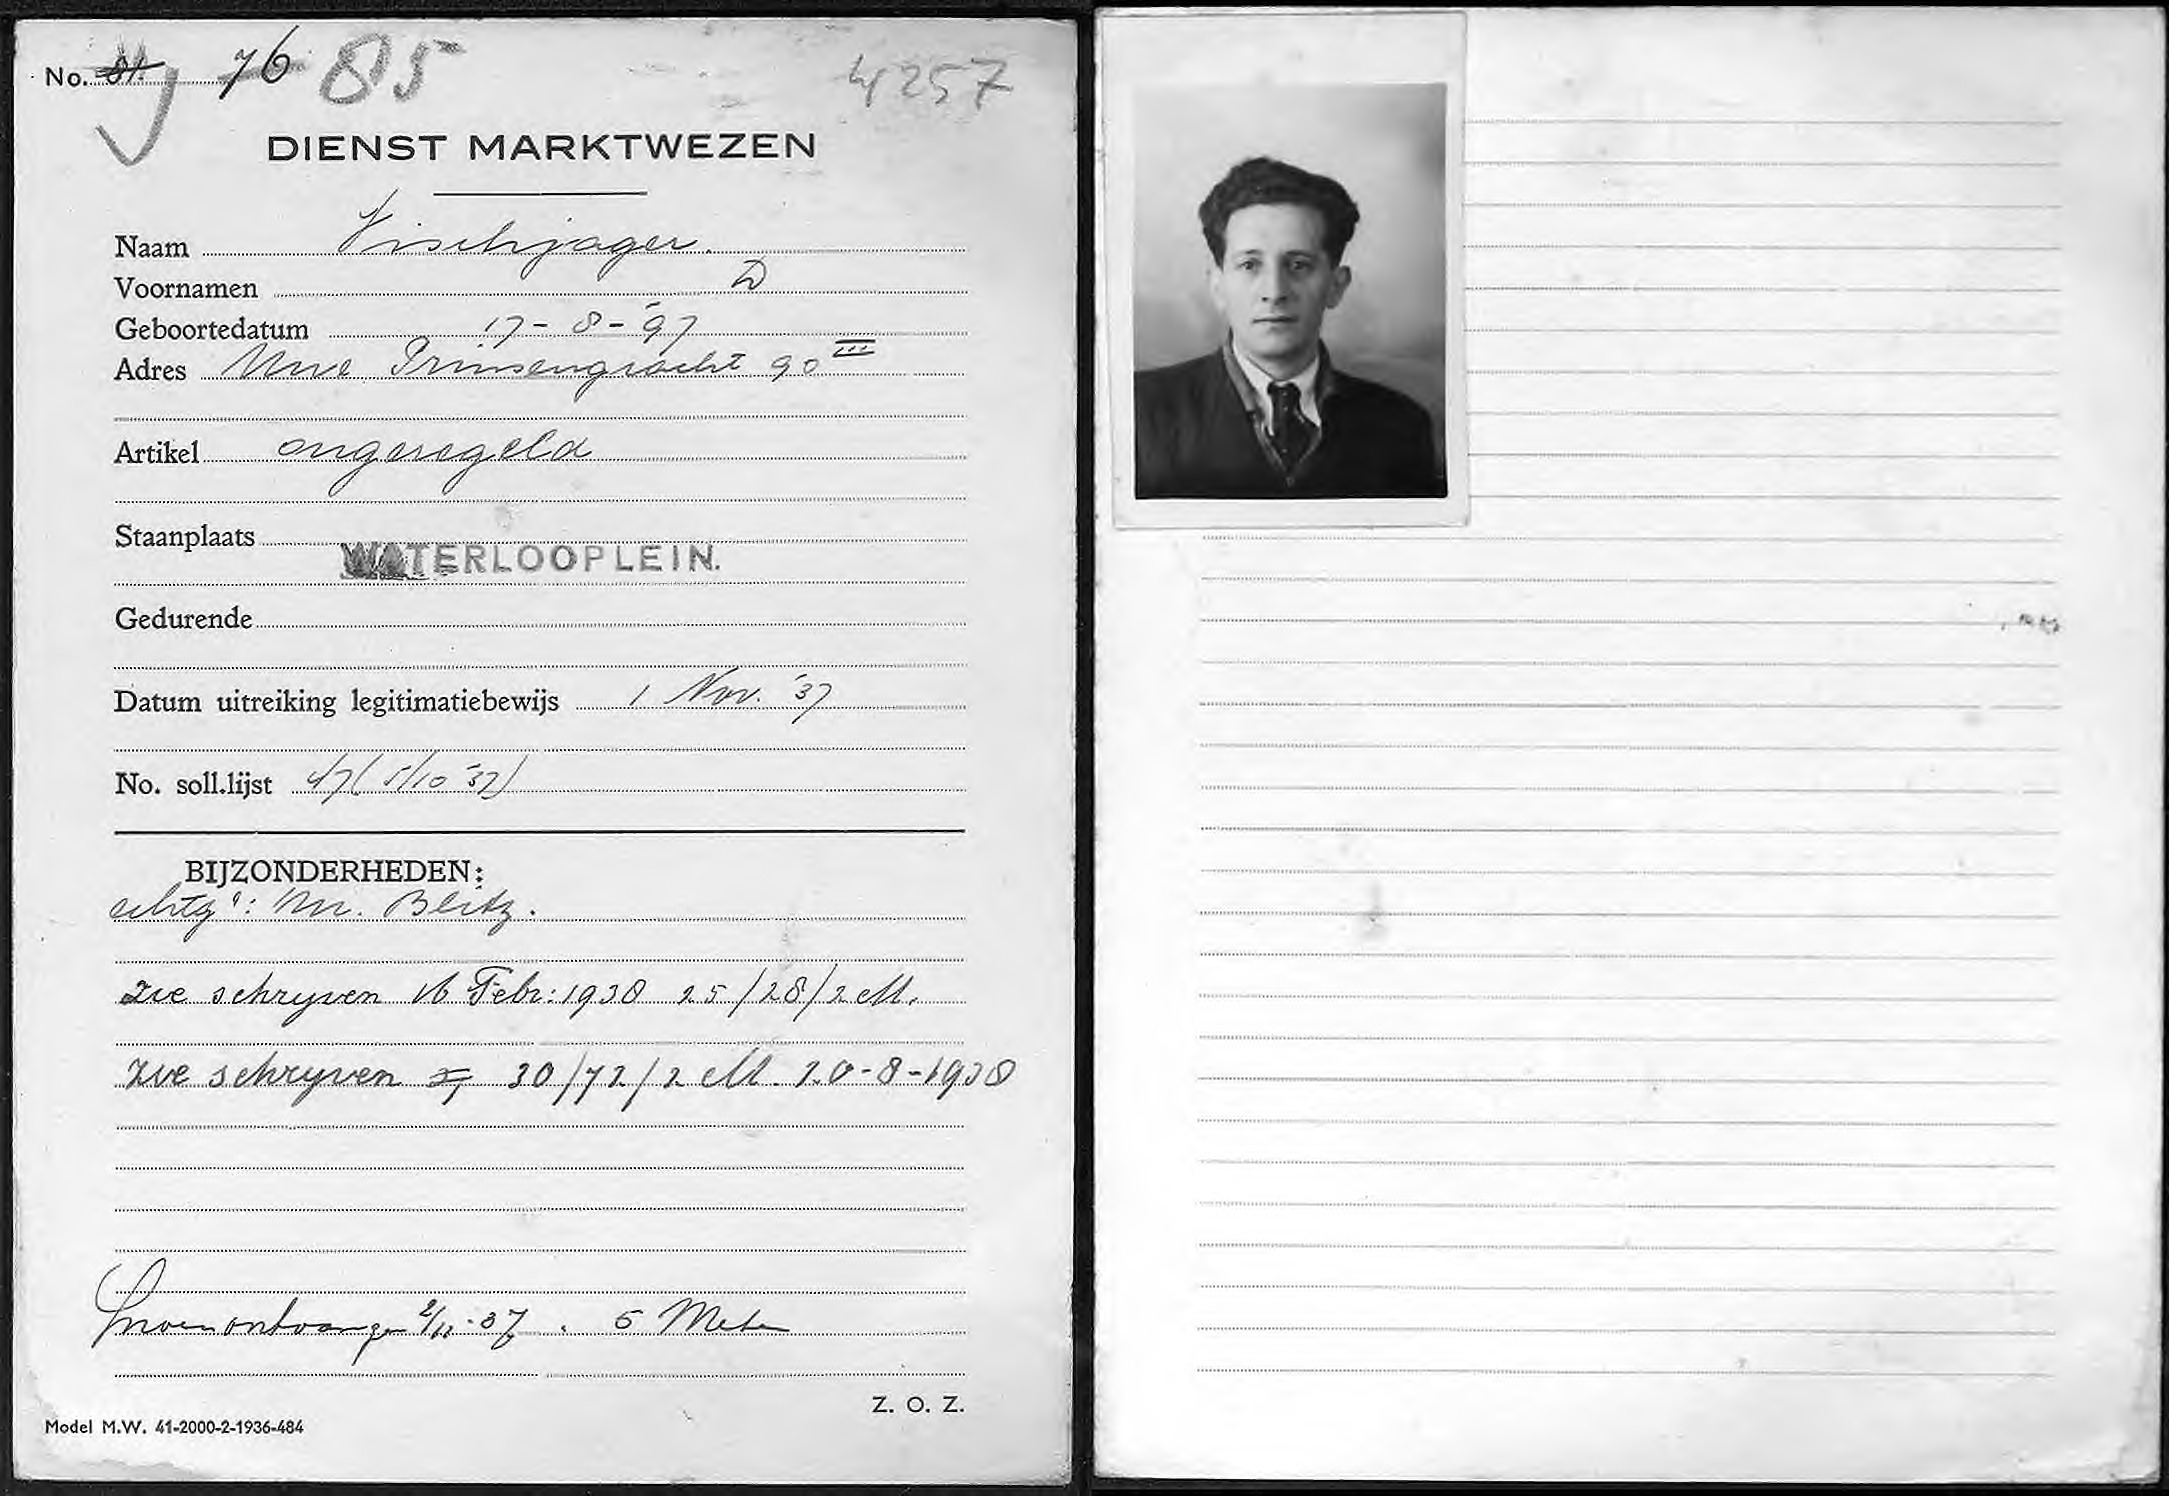 No. 81. 76 85 4257
DIENST MARKTWEZEN
Naam Vischjager.
Voornamen D
Geboortedatum 17-8-'97
Adres Nwe Prinsengracht 90 III
Artikel ongeregeld
Staanplaats WATERLOOPLEIN.
Gedurende
Datum uitreiking legitimatiebewijs 1 Nov. '37
No. soll.lijst 47 (5/10 '37)
BIJZONDERHEDEN:
echtg: M. Blitz.
Zie schryven 16 Febr: 1938 25/28/2 M.
Zie schryven 30/72/2 M. 20-8-1938
ontvangen 2/11-37. 5 Meter
Z. O. Z.
Model M.W. 41-2000-2-1936-484